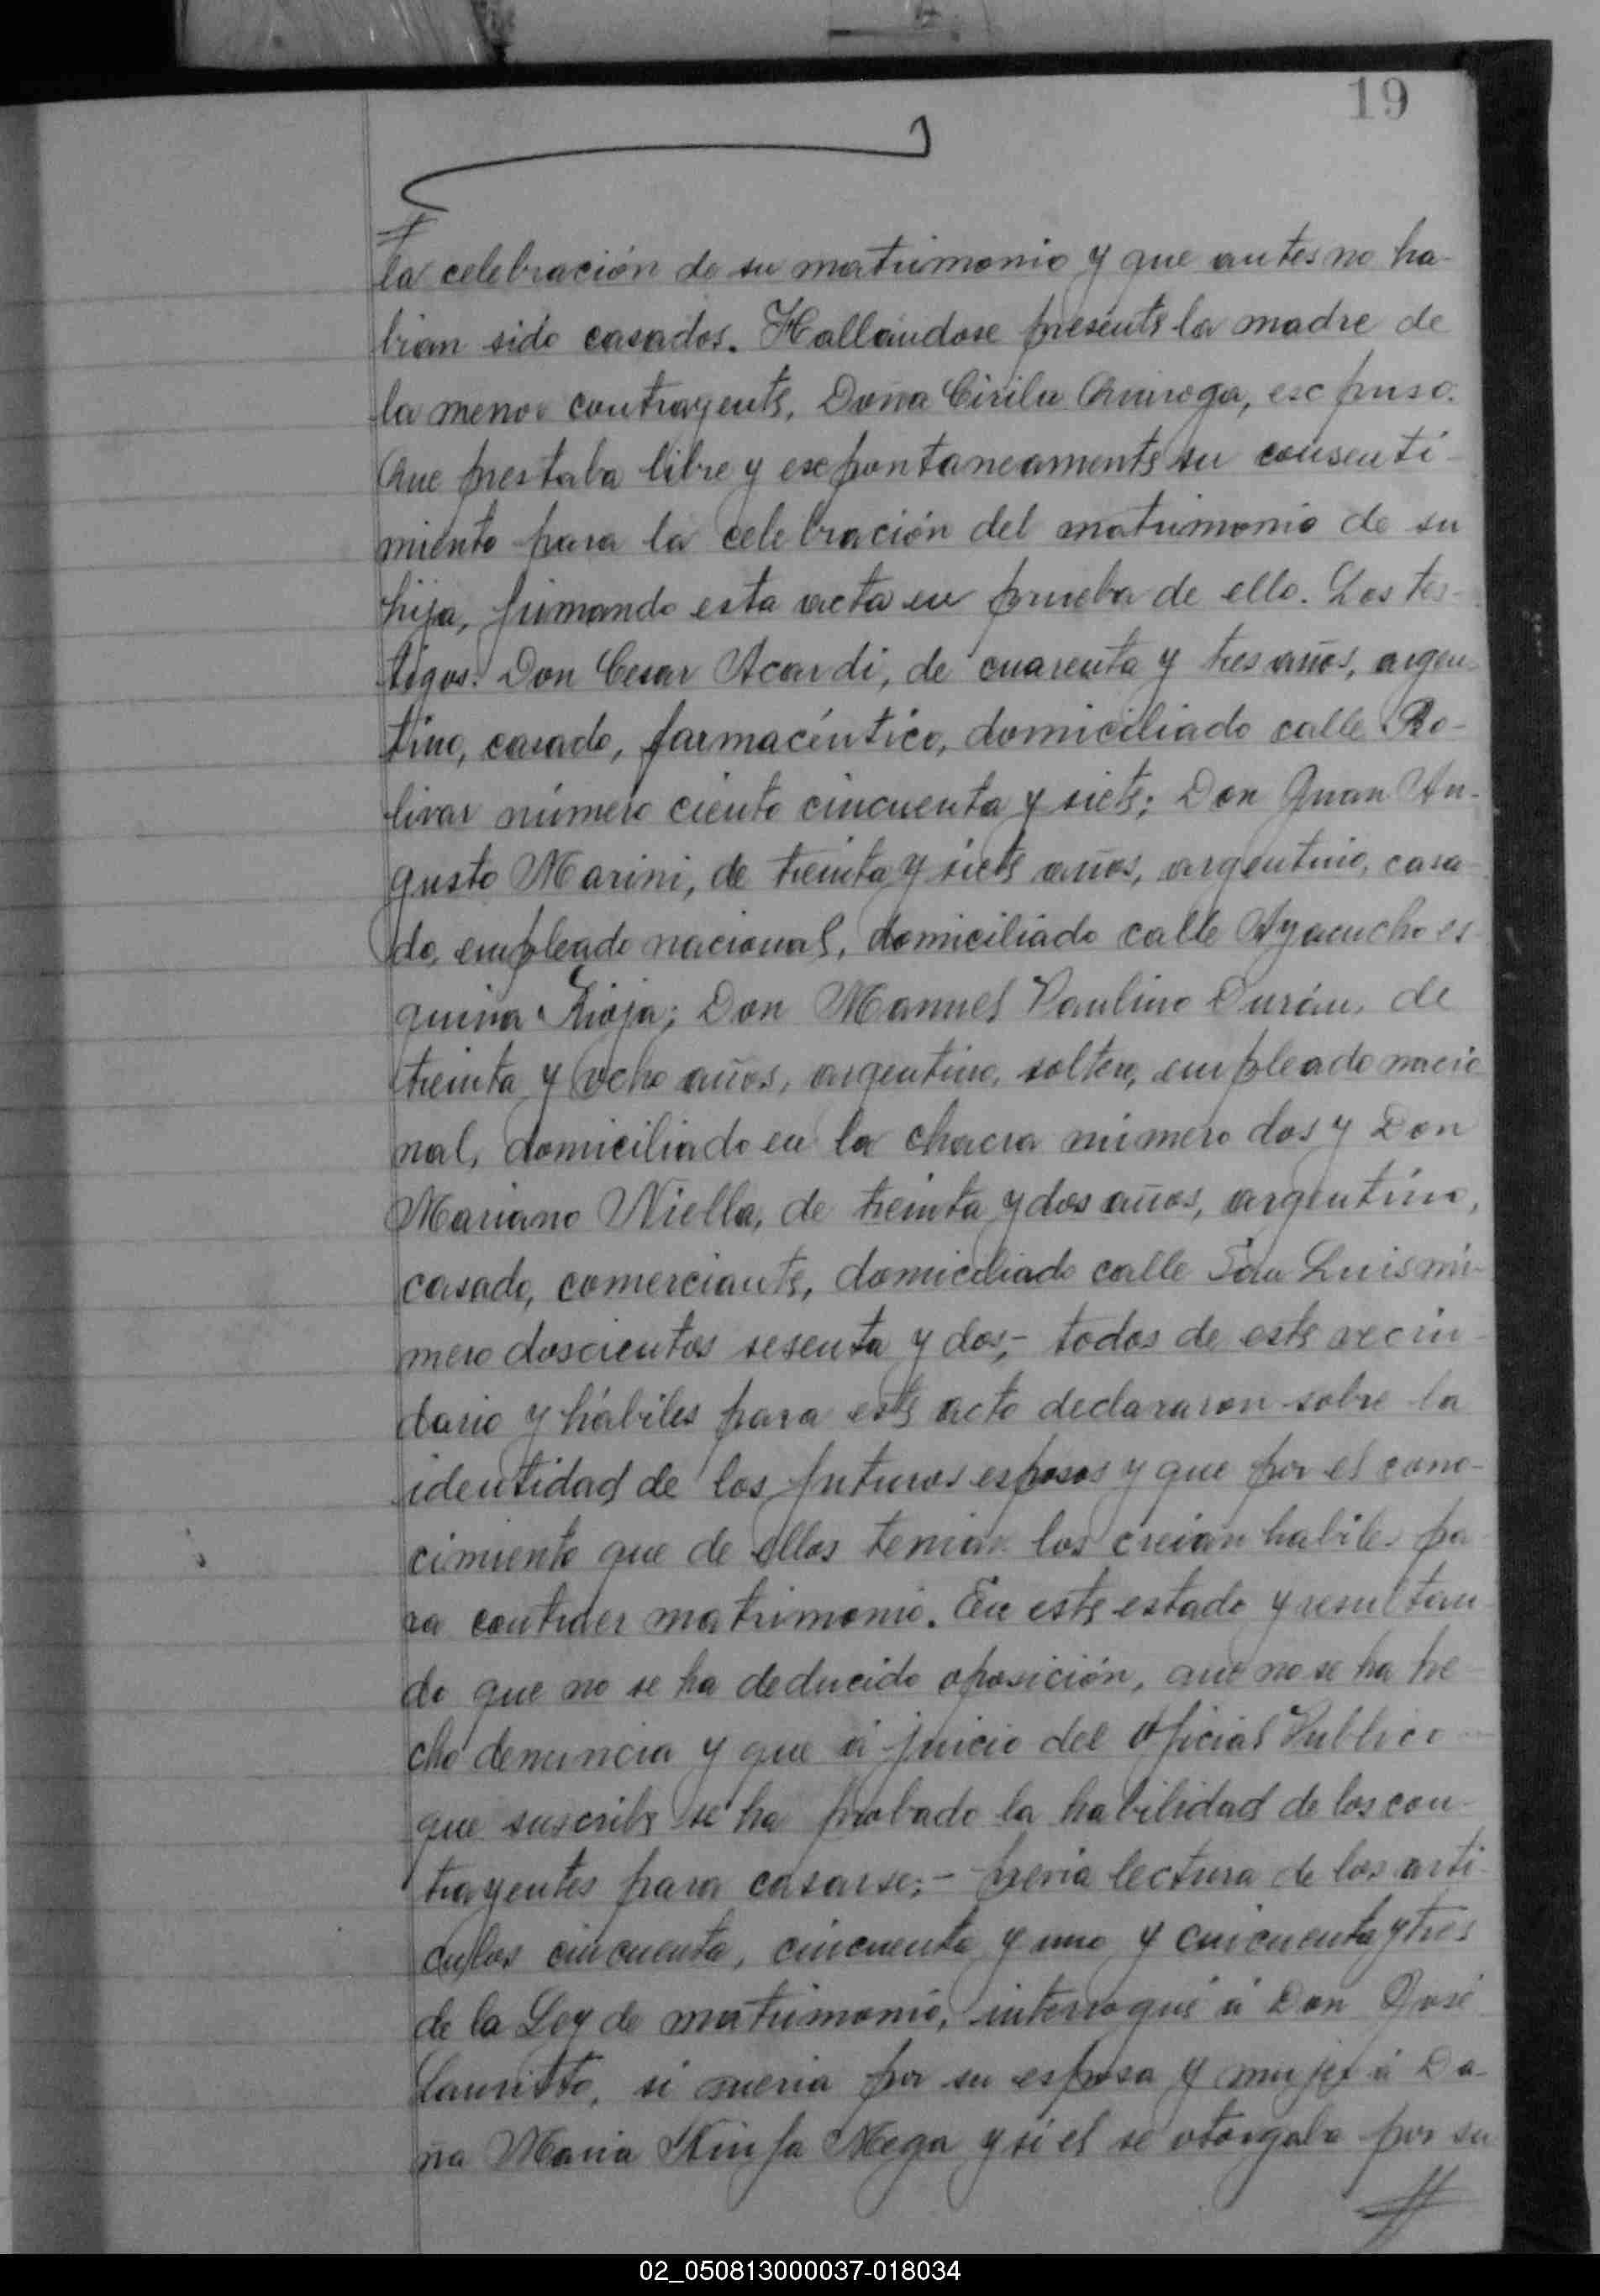 19
la celebración de su matrimonio y que antes no ha-
bian sido casados. Hallandose presente la madre de
la menor contrayente, Doña Cirila Quiroga, escpuso:
Que prestaba libre y escpontaneamente su consenti-
miento para la celebración del matrimonio de su
hija, firmando esta acta en prueba de ello. Los tes-
tigos: Don Cesar Acardi, de cuarenta y tres años, argen-
tino, casado, farmacéutico, domiciliado calle Bo-
livar número ciento cincuenta y siete; Don Juan Au-
gusto Marini, de treinta y siete años, argentino, casa-
do, empleado nacional, domiciliado calle Ayacucho es-
quina Rioja; Don Manuel Paulino Durán, de
treinta y ocho años, argentino, soltero, empleado nacio-
nal, domiciliado en la chacra número dos y Don
Mariano Niella, de treinta y dos años, argentino,
casado, comerciante, domiciliado calle San Luis nú-
mero doscientos sesenta y dos;- todos de este vecin-
dario y hábiles para este acto declararon sobre la
identidad de los futuros esposos y que por el cono-
cimiento que de ellos tenian los creian habiles pa-
ra contraer matrimonio. En este estado y resultan-
do que no se ha deducido oposición, que no se ha he-
cho denuncia y que á juicio del Oficial Publico
que suscribe se ha probado la habilidad de los con-
trayentes para casarse;- previa lectura de los arti-
culos cincuenta, cincuenta y uno y cincuenta y tres
de la Ley de matrimonio, interrogué á Don José
Lauritto, si queria por su esposa y mujer á Do-
ña Maria Mega y si el se otorgaba por su
02_050813000037-018034